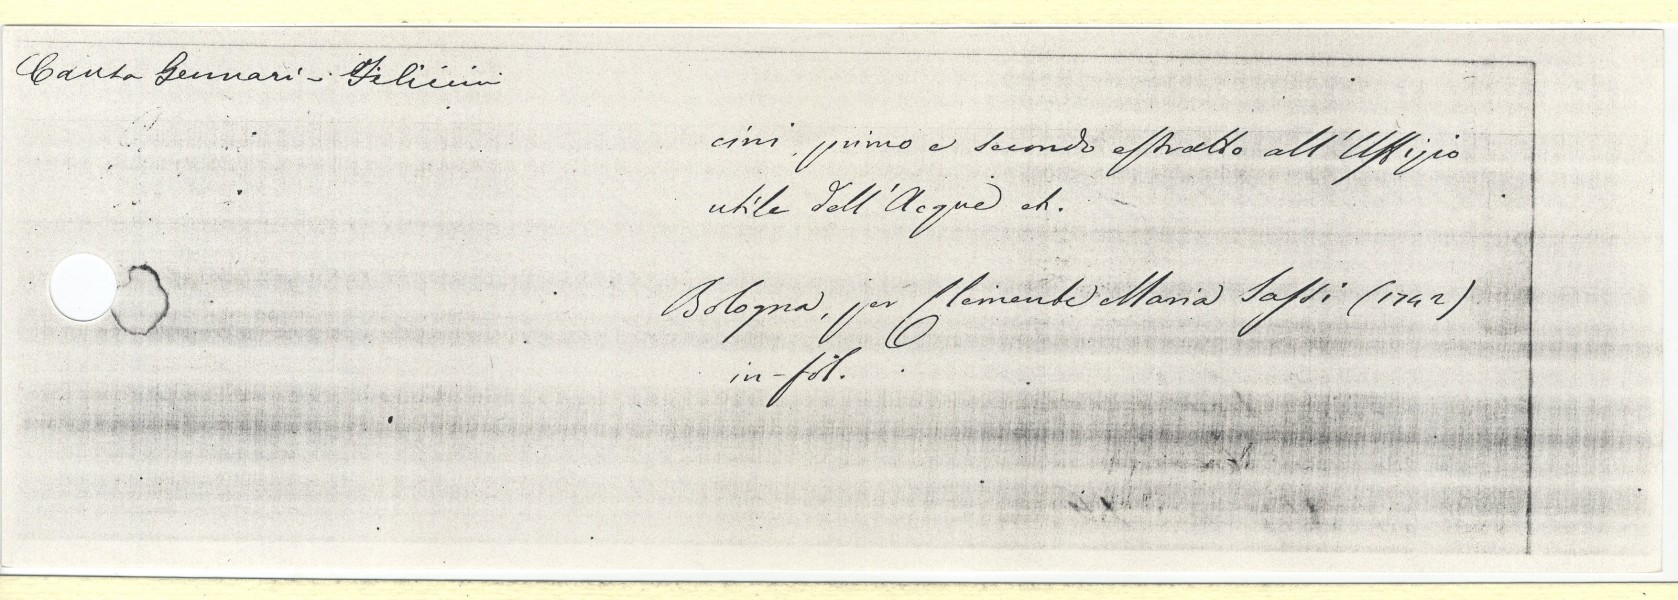 Causa Gennari - Felicini
cini, primo e secondo estratto all'Uffizio
utile dell'Acque et.
Bologna, per Clemente Maria Sassi (1742)
in-fol.